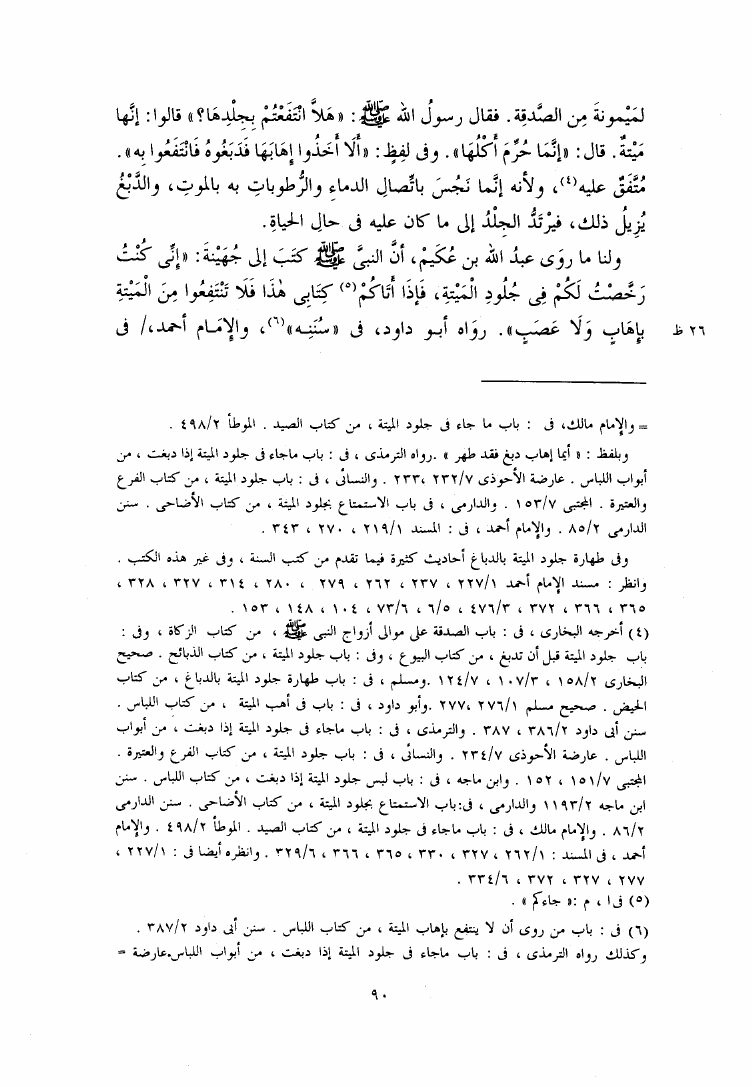 لمَيْمونةَ مِن الصَّدقِة. فقال رسولُ الله ﷺ: «هَلاَّ انْتَفَعْتُمْ بِجِلْدِهَا؟» قالوا: إنَّها
مَيْتةٌ. قال: «إنَّمَا حُرِّمَ أَكْلُهَا». وفى لفِظٍ: «أَلَا أَخَذُوا إِهَابَهَا فَدَبَغُوهُ فَانْتَفَعُوا بِه».
مُتَّفَقٌ عليه(٤)، ولأنه إنَّما نَجُسَ باتِّصالِ الدماءِ والرُّطوباتِ به بالموتِ، والدَّبْغُ
يُزِيلُ ذلك، فيرْتَدُّ الجلْدُ إلى ما كان عليه فى حالِ الحياةِ.
ولنا ما روَى عبدُ الله بن عُكَيمْ، أنَّ النبىَّ ﷺ كتَبَ إلى جُهَيْنةَ: «إِنِّى كُنْتُ
رَخَّصْتُ لَكُمْ فِى جُلُودِ الْمَيْتةِ، فَإذَا أَتَاكُمْ(٥) كِتَابِى هٰذَا فَلَا تَنْتَفِعُوا مِنَ الْمَيْتةِ
بِإِهَابٍ وَلَا عَصَبٍ». روَاه أبـو داود، فى «سُنَنِـه»(٦)، والإمَـام أحمـد،/ فى ٢٦ ظ
= والإمام مالك، فى : باب ما جاء فى جلود الميتة ، من كتاب الصيد . الموطأ ٤٩٨/٢ .
وبلفظ : « أيما إهاب دبغ فقد طهر » .رواه الترمذى ، فى : باب ماجاء فى جلود الميتة إذا دبغت ، من
أبواب اللباس . عارضة الأحوذى ٢٣٢/٧ ، ٢٣٣ . والنسائى ، فى : باب جلود الميتة ، من كتاب الفرع
والعتيرة . المجتبى ١٥٣/٧ . والدارمى ، فى باب الاستمتاع بجلود الميتة ، من كتاب الأضاحى . سنن
الدارمى ٨٥/٢ . والإمام أحمد ، فى : المسند ٢١٩/١ ، ٢٧٠ ، ٣٤٣ .
وفى طهارة جلود الميتة بالدباغ أحاديث كثيرة فيما تقدم من كتب السنة ، وفى غير هذه الكتب .
وانظر : مسند الإمام أحمد ٢٢٧/١ ، ٢٣٧ ، ٢٦٢ ، ٢٧٩ ، ٢٨٠ ، ٣١٤ ، ٣٢٧ ، ٣٢٨ ،
٣٦٥ ، ٣٦٦ ، ٣٧٢ ، ٤٧٦/٣ ، ٦/٥ ، ٧٣/٦ ، ١٠٤ ، ١٤٨ ، ١٥٣ .
(٤) أخرجه البخارى ، فى : باب الصدقة على موالى أزواج النبى ﷺ ، من كتاب الزكاة ، وفى :
باب جلود الميتة قبل أن تدبغ ، من كتاب البيوع ، وفى : باب جلود الميتة ، من كتاب الذبائح . صحيح
البخارى ١٥٨/٢ ، ١٠٧/٣ ، ١٢٤/٧ .ومسلم ، فى : باب طهارة جلود الميتة بالدباغ ، من كتاب
الحيض . صحيح مسلم ٢٧٦/١ ،٢٧٧ .وأبو داود ، فى : باب فى أهب الميتة ، من كتاب اللباس .
سنن أبى داود ٣٨٦/٢ ، ٣٨٧ . والترمذى ، فى : باب ماجاء فى جلود الميتة إذا دبغت ، من أبواب
اللباس . عارضة الأحوذى ٢٣٤/٧ . والنسائى ، فى : باب جلود الميتة ، من كتاب الفرع والعتيرة .
المجتبى ١٥١/٧ ، ١٥٢ . وابن ماجه ، فى : باب لبس جلود الميتة إذا دبغت ، من كتاب اللباس . سنن
ابن ماجه ١١٩٣/٢ والدارمى ، فى:باب الاستمتاع بجلود الميتة ، من كتاب الأضاحى . سنن الدارمى
٨٦/٢ . والإمام مالك ، فى : باب ماجاء فى جلود الميتة ، من كتاب الصيد . الموطأ ٤٩٨/٢ . والإمام
أحمد ، فى المسند : ٢٦٢/١ ، ٣٢٧ ، ٣٣٠ ، ٣٦٥ ، ٣٦٦ ، ٣٢٩/٦ . وانظره أيضا فى : ٢٢٧/١ ،
٢٧٧ ، ٣٢٧ ، ٣٧٢ ، ٣٣٤/٦ .
(٥) فى ا ، م :« جاءكم » .
(٦) فى : باب من روى أن لا ينتفع بإهاب الميتة ، من كتاب اللباس . سنن أبى داود ٣٨٧/٢ .
وكذلك رواه الترمذى ، فى : باب ماجاء فى جلود الميتة إذا دبغت ، من أبواب اللباس.عارضة =
٩٠